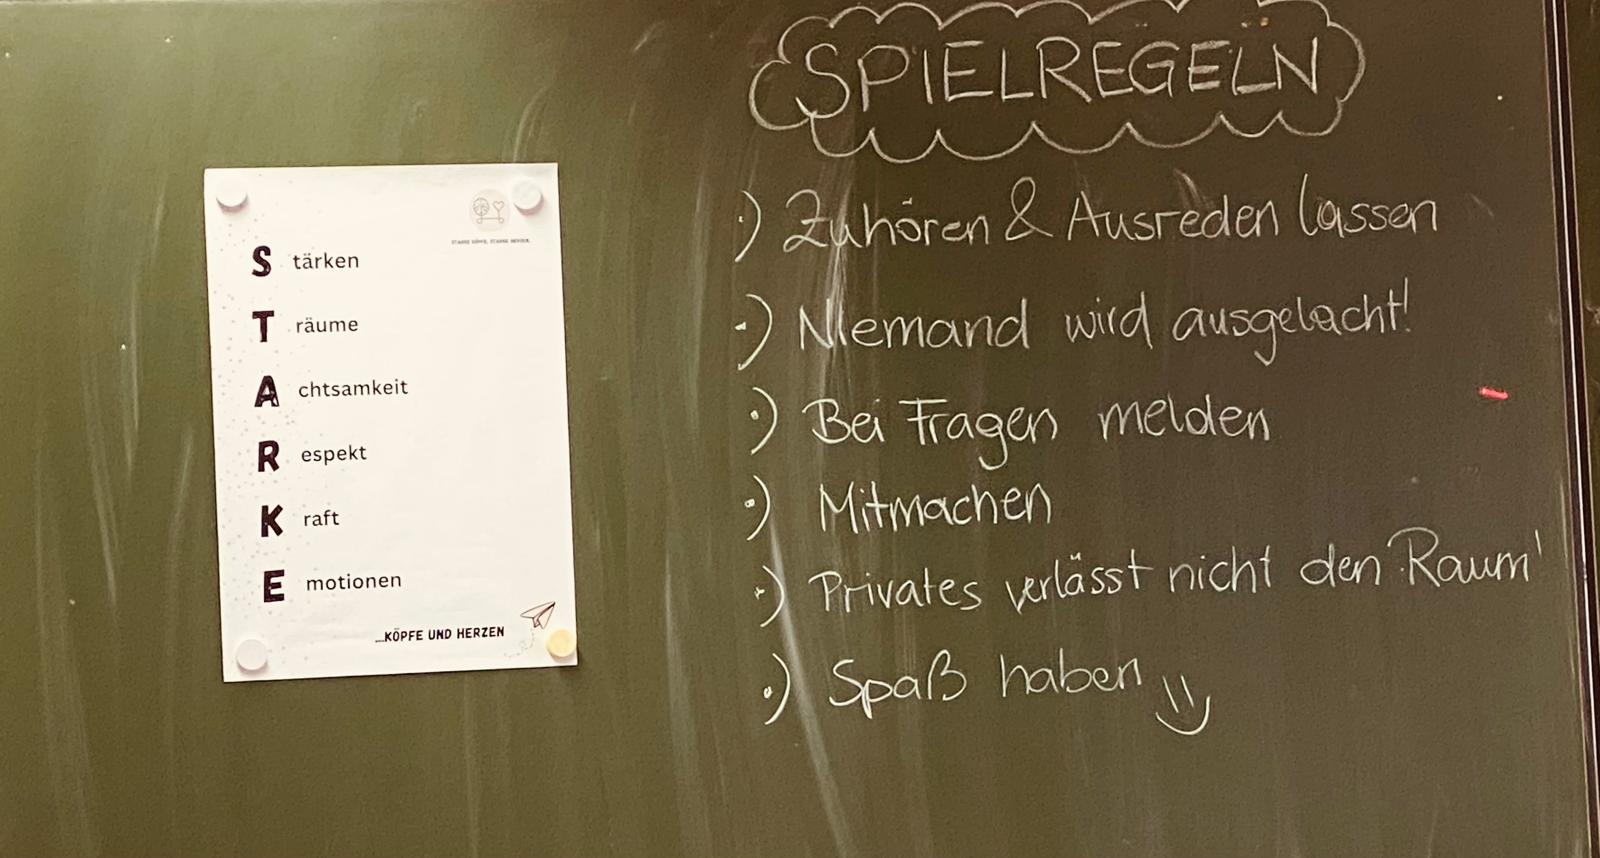 STARKE KÖPFE, STARKE HERZEN.
Stärken
Träume
Achtsamkeit
Respekt
Kraft
Emotionen
...KÖPFE UND HERZEN
SPIELREGELN
·) Zuhören & Ausreden lassen
·) Niemand wird ausgelacht!
·) Bei Fragen melden
·) Mitmachen
·) Privates verlässt nicht den Raum!
·) Spaß haben